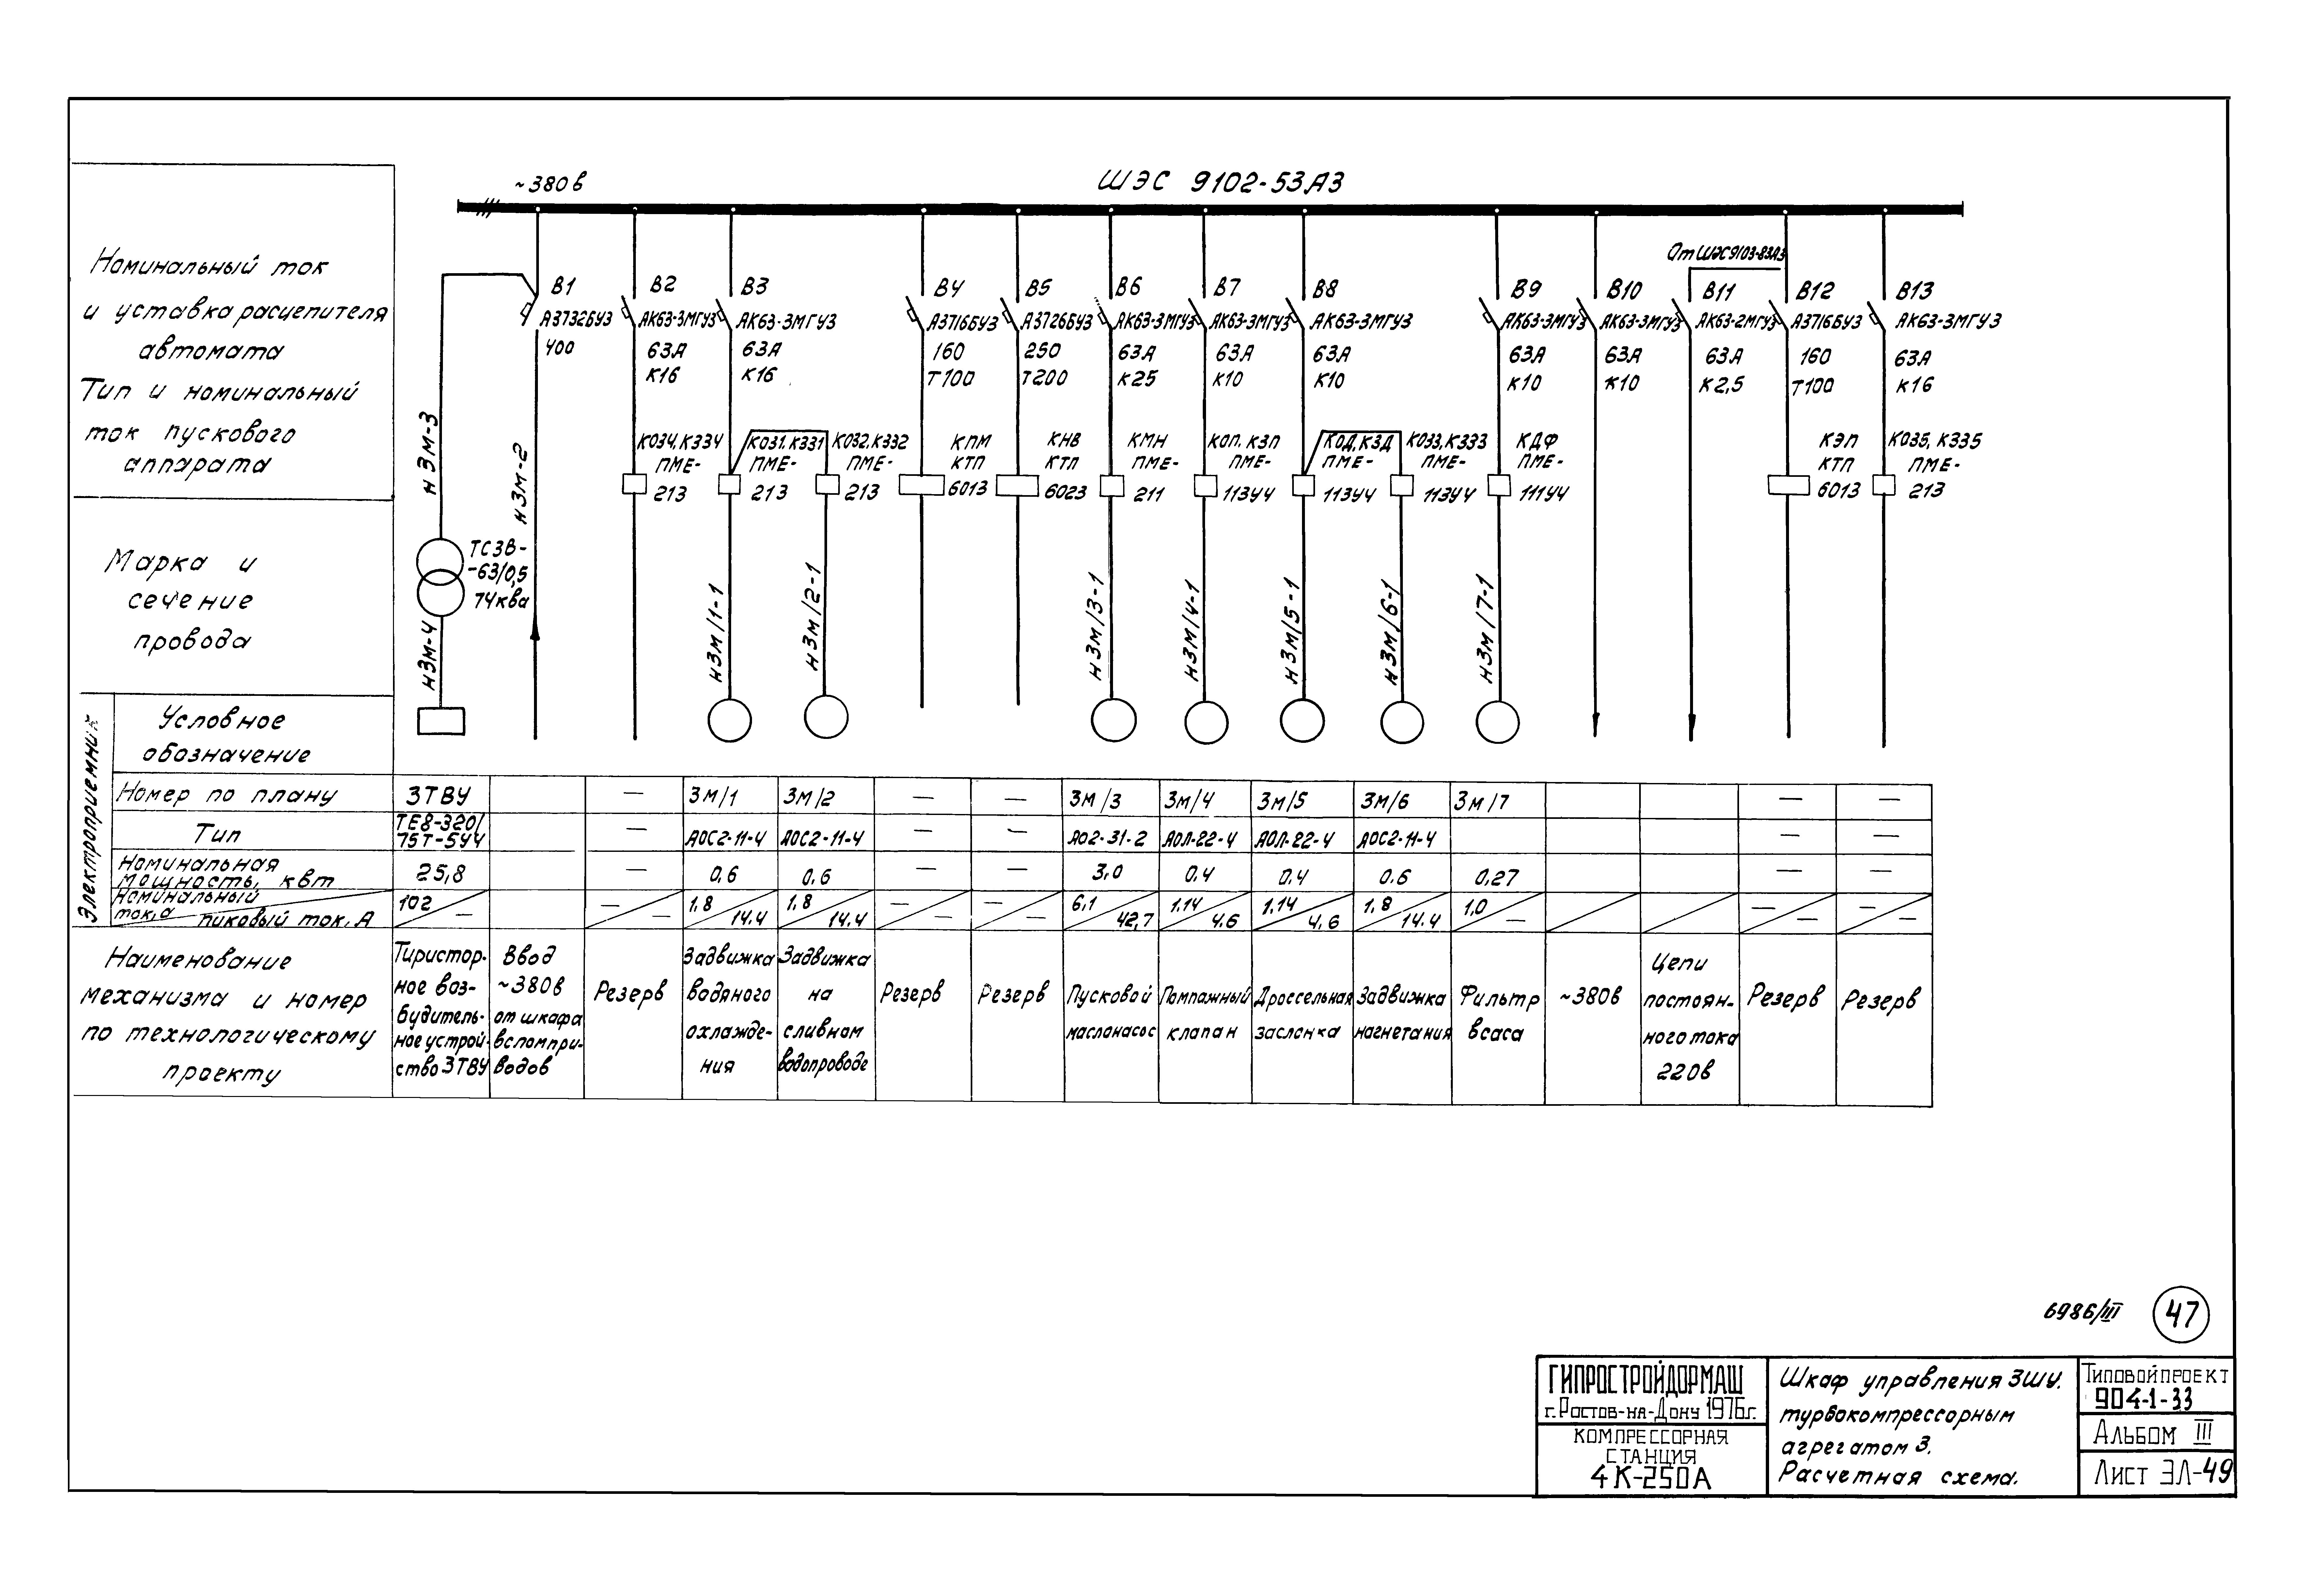 ~380в
ШЭС 9102-53А3
Номинальный ток
и уставка расцепителя
автомата
Тип и номинальный
ток пускового
аппарата
От ШЭС9103-83А3
В1
А3732БУ3
400
В2
АК63-3МГУ3
63А
К16
В3
АК63-3МГУ3
63А
К16
В4
А3716БУ3
160
Т100
В5
А3726БУ3
250
Т200
В6
АК63-3МГУ3
63А
К25
В7
АК63-3МГУ3
63А
К10
В8
АК63-3МГУ3
63А
К10
В9
АК63-3МГУ3
63А
К10
В10
АК63-3МГУ3
63А
К10
В11
АК63-2МГУ3
63А
К2,5
В12
А3716БУ3
160
Т100
В13
АК63-3МГУ3
63А
К16
КО34, К334
ПМЕ-
213
КО31. К331
ПМЕ-
213
КО32, К332
ПМЕ-
213
КПМ
КТП
6013
КНВ
КТП
6023
КМН
ПМЕ-
211
КОП. КЗП
ПМЕ-
113У4
КОД, КЗД
ПМЕ-
113У4
КО33, К333
ПМЕ-
113У4
КДФ
ПМЕ-
111У4
КЭП
КТП
6013
КО35, К335
ПМЕ-
213
Марка и
сечение
провода
Н3М-3
Н3М-2
ТСЗВ-
-63/0,5
74ква
Н3М-4
Н3М/1-1
Н3М/2-1
Н3М/3-1
Н3М/4-1
Н3М/5-1
Н3М/6-1
Н3М/7-1
Электроприемник
Условное
обозначение
Номер по плану
3ТВУ
—
3М/1
3М/2
—
—
3М/3
3М/4
3М/5
3М/6
3М/7
—
—
Тип
ТЕ8-320/
75Т-5У4
—
АОС2-11-4
АОС2-11-4
—
—
АО2-31-2
АОЛ-22-4
АОЛ-22-4
АОС2-11-4
—
—
Номинальная
мощность, квт
25,8
—
0,6
0,6
—
—
3,0
0,4
0,4
0.6
0,27
—
—
Номинальный
ток, а
пиковый ток, А
102
—
—
—
1,8
14.4
1,8
14.4
—
—
—
—
6,1
42,7
1,14
4.6
1,14
4,6
1,8
14.4
1,0
—
—
—
—
—
Наименование
механизма и номер
по технологическому
проекту
Тиристор-
ное воз-
будитель-
ное устрой-
ство 3ТВУ
Ввод
~380в
от шкафа
вспомпри-
водов
Резерв
Задвижка
водяного
охлажде-
ния
Задвижка
на
сливном
водопроводе
Резерв
Резерв
Пусковой
маслонасос
Помпажный
клапан
Дроссельная
заслонка
Задвижка
нагнетания
Фильтр
всаса
~380в
Цепи
постоян-
ного тока
220в
Резерв
Резерв
6986/III
47
ГИПРОСТРОЙДОРМАШ
г. Ростов-на-Дону 1976г.
КОМПРЕССОРНАЯ
СТАНЦИЯ
4К-250А
Шкаф управления 3ШУ.
турбокомпрессорным
агрегатом 3.
Расчетная схема.
ТИПОВОЙ ПРОЕКТ
904-1-33
АЛЬБОМ III
ЛИСТ ЭЛ-49